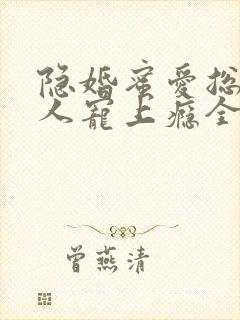 隐婚蜜爱总
人宠上瘾全
曾燕清